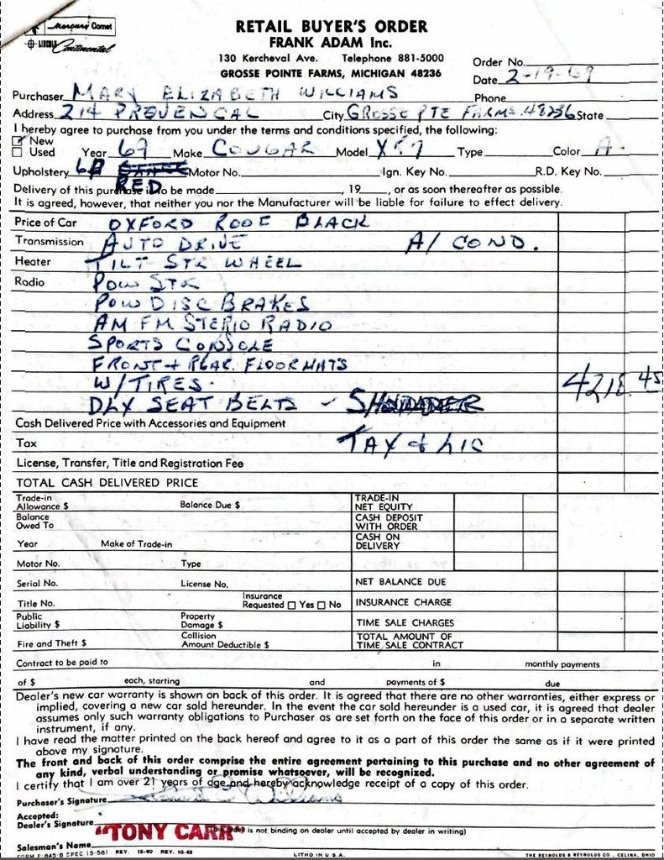 Mercury Comet
LINCOLN Continental
RETAIL BUYER'S ORDER
FRANK ADAM Inc.
130 Kercheval Ave. Telephone 881-5000
GROSSE POINTE FARMS, MICHIGAN 48236
Order No.
Date 2-19-69
Purchaser MARY ELIZABETH WILLIAMS
Phone
Address 214 PROVENCAL City GROSSE PTE FARMS 48236 State
I hereby agree to purchase from you under the terms and conditions specified, the following:
New
Used Year 69 Make COUGAR Model XR7 Type Color A-
Upholstery 6A Motor No. Ign. Key No. R.D. Key No.
RED
Delivery of this purchase is to be made , 19 , or as soon thereafter as possible.
It is agreed, however, that neither you nor the Manufacturer will be liable for failure to effect delivery.
Price of Car OXFORD ROOF BLACK
Transmission AUTO DRIVE A/COND.
Heater TILT STR WHEEL
Radio POW STR
POW DISC BRAKES
AM FM STERIO RADIO
SPORTS CONSOLE
FRONT + REAR FLOOR MATS
W/TIRES. 4218 45
DLX SEAT BELTS - SHOULDER
Cash Delivered Price with Accessories and Equipment
Tax TAX & LIC
License, Transfer, Title and Registration Fee
TOTAL CASH DELIVERED PRICE
Trade-in Allowance $ Balance Due $ TRADE-IN NET EQUITY
Balance Owed To CASH DEPOSIT WITH ORDER
Year Make of Trade-in CASH ON DELIVERY
Motor No. Type
Serial No. License No. NET BALANCE DUE
Title No. Insurance Requested Yes No INSURANCE CHARGE
Public Liability $ Property Damage $ TIME SALE CHARGES
Fire and Theft $ Collision Amount Deductible $ TOTAL AMOUNT OF TIME SALE CONTRACT
Contract to be paid to in monthly payments
of $ each, starting and payments of $ due
Dealer's new car warranty is shown on back of this order. It is agreed that there are no other warranties, either express or
implied, covering a new car sold hereunder. In the event the car sold hereunder is a used car, it is agreed that dealer
assumes only such warranty obligations to Purchaser as are set forth on the face of this order or in a separate written
instrument, if any.
I have read the matter printed on the back hereof and agree to it as a part of this order the same as if it were printed
above my signature.
The front and back of this order comprise the entire agreement pertaining to this purchase and no other agreement of
any kind, verbal understanding or promise whatsoever, will be recognized.
I certify that I am over 21 years of age and hereby acknowledge receipt of a copy of this order.
Purchaser's Signature Williams
Accepted:
Dealer's Signature "TONY CARR" is not binding on dealer until accepted by dealer in writing)
Salesman's Name
FORM F-845-B SPEC (5-58) LITHO IN U.S.A. THE REYNOLDS & REYNOLDS CO., CELINA, OHIO